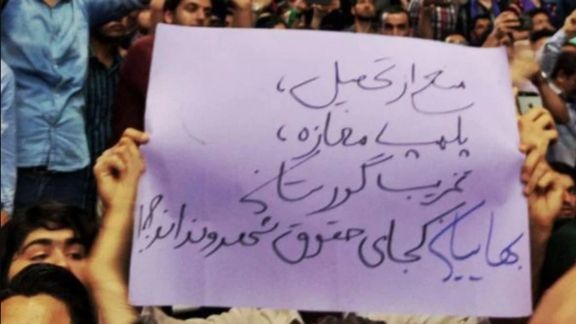 منع از تحصیل،
پلمپ مغازه،
تخریب گورستان
بهاییان کجای حقوق شهروند اند؟!